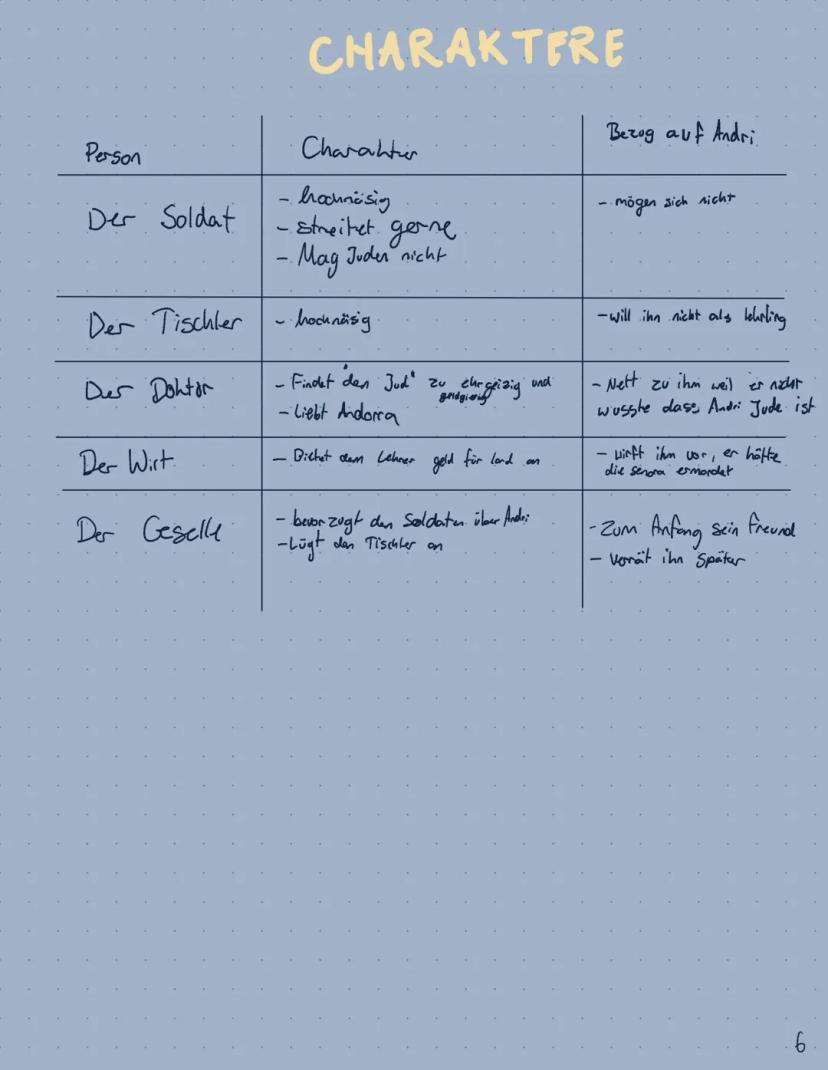 CHARAKTERE
Person
Charakter
Bezug auf Andri
Der Soldat
- hochnäsig
- streitet gerne
- Mag Juden nicht
- mögen sich nicht
Der Tischler
- hochnäsig
- will ihn nicht als lehrling
Der Doktor
- Findet "den Jud" zu ehrgeizig und
geldgierig
- Liebt Andorra
- Nett zu ihm weil er nicht
wusste dass Andri Jude ist
Der Wirt
- Bietet dem Lehrer geld für land an
- wirft ihm vor, er hätte
die senora ermordet
Der Geselle
- bevorzugt den Soldaten über Andri
- Lügt den Tischler an
- Zum Anfang sein Freund
- Verrät ihn später
6